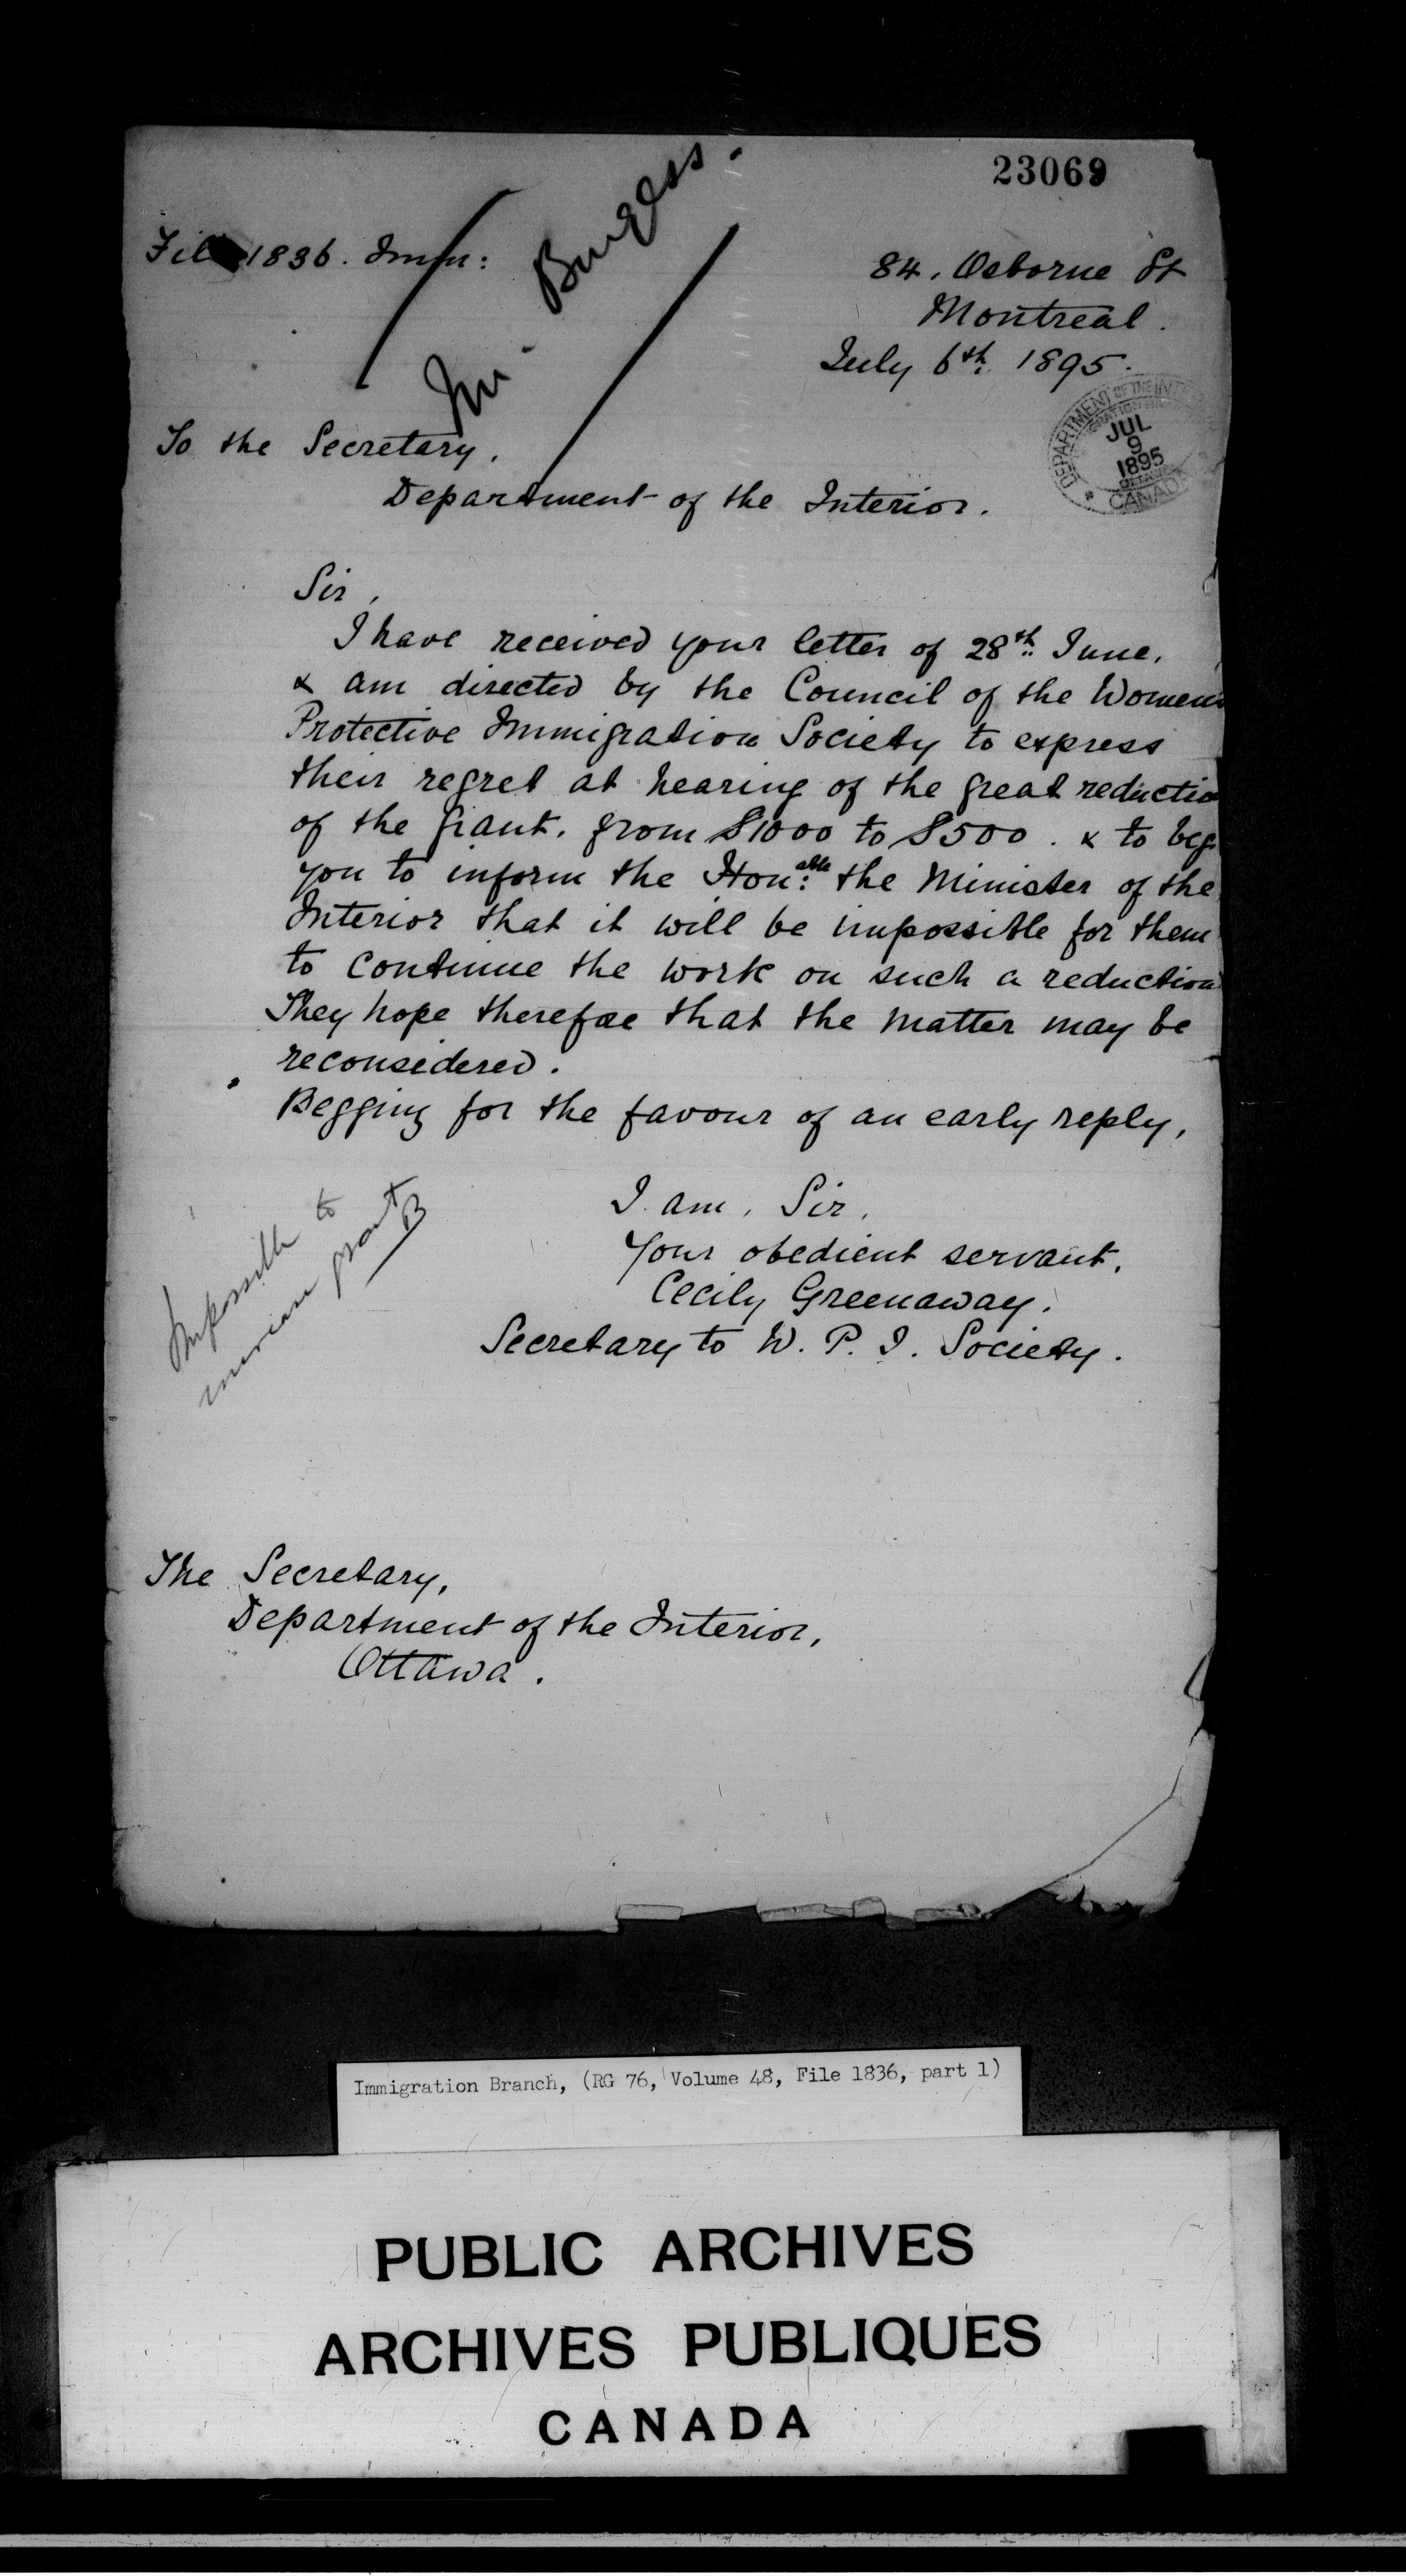 23069
File 1836. Imm:
Mr. Burgess.
84, Osborne St
Montreal.
July 6th. 1895.
DEPARTMENT OF THE INTERIOR
JUL
9
1895
OTTAWA
CANADA
To the Secretary,
Department of the Interior.
Sir,
I have received your letter of 28th June,
& am directed by the Council of the Women's
Protective Immigration Society to express
their regret at hearing of the great reductio
of the grant. from $1000 to $500. & to beg
you to inform the Hon:able the Minister of the
Interior that it will be impossible for them
to continue the work on such a reduction
They hope therefore that the matter may be
reconsidered.
Begging for the favour of an early reply,
I am, Sir,
Your obedient servant,
Cecily Greenaway.
Secretary to W. P. I. Society.
Impossible to
increase grant
B
The Secretary,
Department of the Interior,
Ottawa.
Immigration Branch, (RG 76, Volume 48, File 1836, part 1)
PUBLIC ARCHIVES
ARCHIVES PUBLIQUES
CANADA